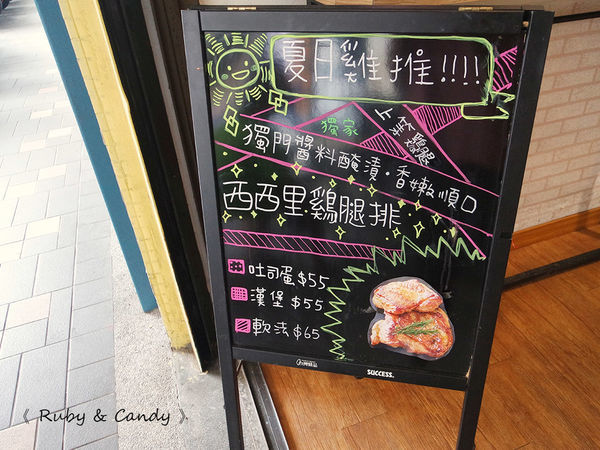 夏日雞推!!!!
獨家
上等雞腿
獨門醬料醃漬・香嫩順口
西西里雞腿排
吐司蛋$55
漢堡$55
軟法$65
SUCCESS.
《 Ruby & Candy 》